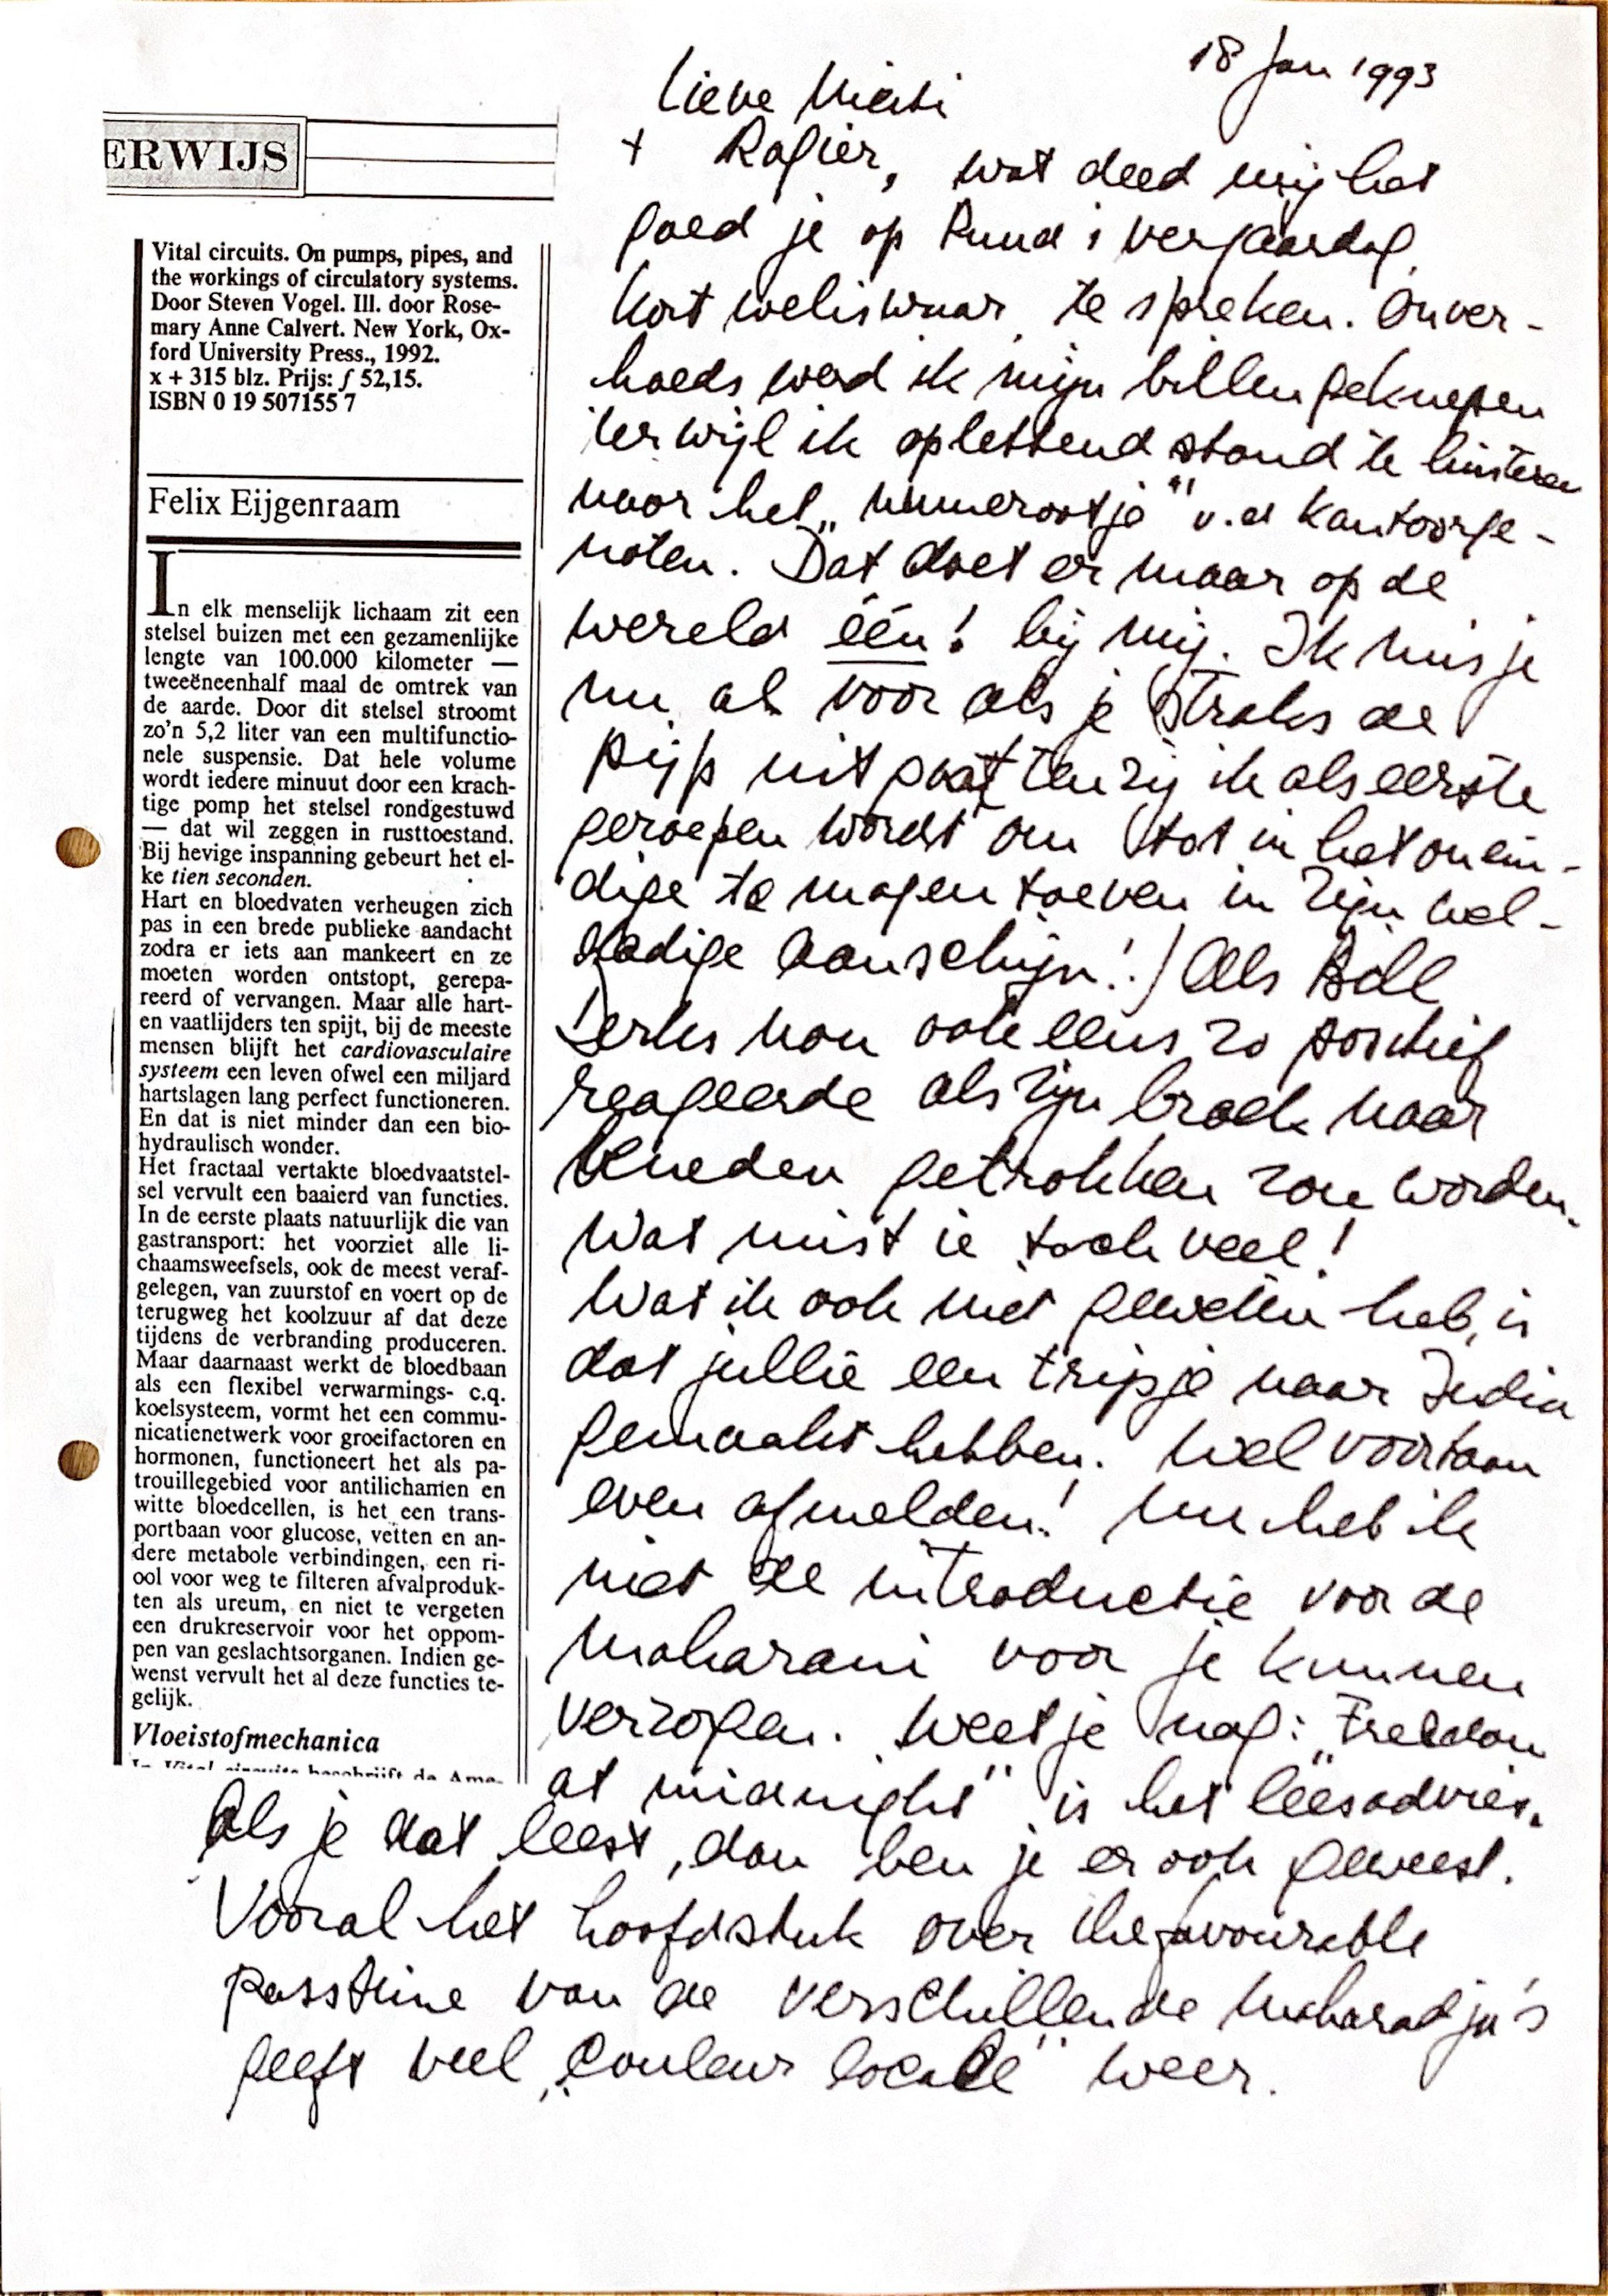 18 Jan 1993
Lieve
+ Rogier, wat deed mij het
goed je op Ruud's verjaardag,
kort weliswaar, te spreken. Onver-
hoeds werd ik in mijn billen geknepen
terwijl ik oplettend stond te luisteren
naar het „nummerootje" v.d kantoorge-
noten. Dat doet er maar op de
wereld één! bij mij. Ik mis je
nu al voor als je straks de
pijp uit gaat tenzij ik als eerste
geroepen wordt om tot in het onein-
dige te mogen toeven in Zijn wel-
dadige aanschijn!! Als
nou ook eens zo positief
reageerde als zijn broek naar
beneden getrokken zou worden.
Wat mist ie toch veel!
Wat ik ook niet geweten heb, is
dat jullie een tripje naar India
gemaakt hebben. Wel voortaan
even afmelden! Nu heb ik
niet de introductie voor de
maharani voor je kunnen
verzorgen. Weet je nog: „Freedom
at midnight" is het leesadvies.
Als je dat leest, dan ben je er ook geweest.
Vooral het hoofdstuk over the favourable
passtime van de verschillende maharadja's
geeft veel „couleur locale" weer.
ERWIJS
Vital circuits. On pumps, pipes, and
the workings of circulatory systems.
Door Steven Vogel. Ill. door Rose-
mary Anne Calvert. New York, Ox-
ford University Press., 1992.
x + 315 blz. Prijs: ƒ 52,15.
ISBN 0 19 507155 7
Felix Eijgenraam
In elk menselijk lichaam zit een
stelsel buizen met een gezamenlijke
lengte van 100.000 kilometer —
tweeëneenhalf maal de omtrek van
de aarde. Door dit stelsel stroomt
zo'n 5,2 liter van een multifunctio-
nele suspensie. Dat hele volume
wordt iedere minuut door een krach-
tige pomp het stelsel rondgestuwd
— dat wil zeggen in rusttoestand.
Bij hevige inspanning gebeurt het el-
ke tien seconden.
Hart en bloedvaten verheugen zich
pas in een brede publieke aandacht
zodra er iets aan mankeert en ze
moeten worden ontstopt, gerepa-
reerd of vervangen. Maar alle hart-
en vaatlijders ten spijt, bij de meeste
mensen blijft het cardiovasculaire
systeem een leven ofwel een miljard
hartslagen lang perfect functioneren.
En dat is niet minder dan een bio-
hydraulisch wonder.
Het fractaal vertakte bloedvaatstel-
sel vervult een baaierd van functies.
In de eerste plaats natuurlijk die van
gastransport: het voorziet alle li-
chaamsweefsels, ook de meest veraf-
gelegen, van zuurstof en voert op de
terugweg het koolzuur af dat deze
tijdens de verbranding produceren.
Maar daarnaast werkt de bloedbaan
als een flexibel verwarmings- c.q.
koelsysteem, vormt het een commu-
nicatienetwerk voor groeifactoren en
hormonen, functioneert het als pa-
trouillegebied voor antilichamen en
witte bloedcellen, is het een trans-
portbaan voor glucose, vetten en an-
dere metabole verbindingen, een ri-
ool voor weg te filteren afvalproduk-
ten als ureum, en niet te vergeten
een drukreservoir voor het oppom-
pen van geslachtsorganen. Indien ge-
wenst vervult het al deze functies te-
gelijk.
Vloeistofmechanica